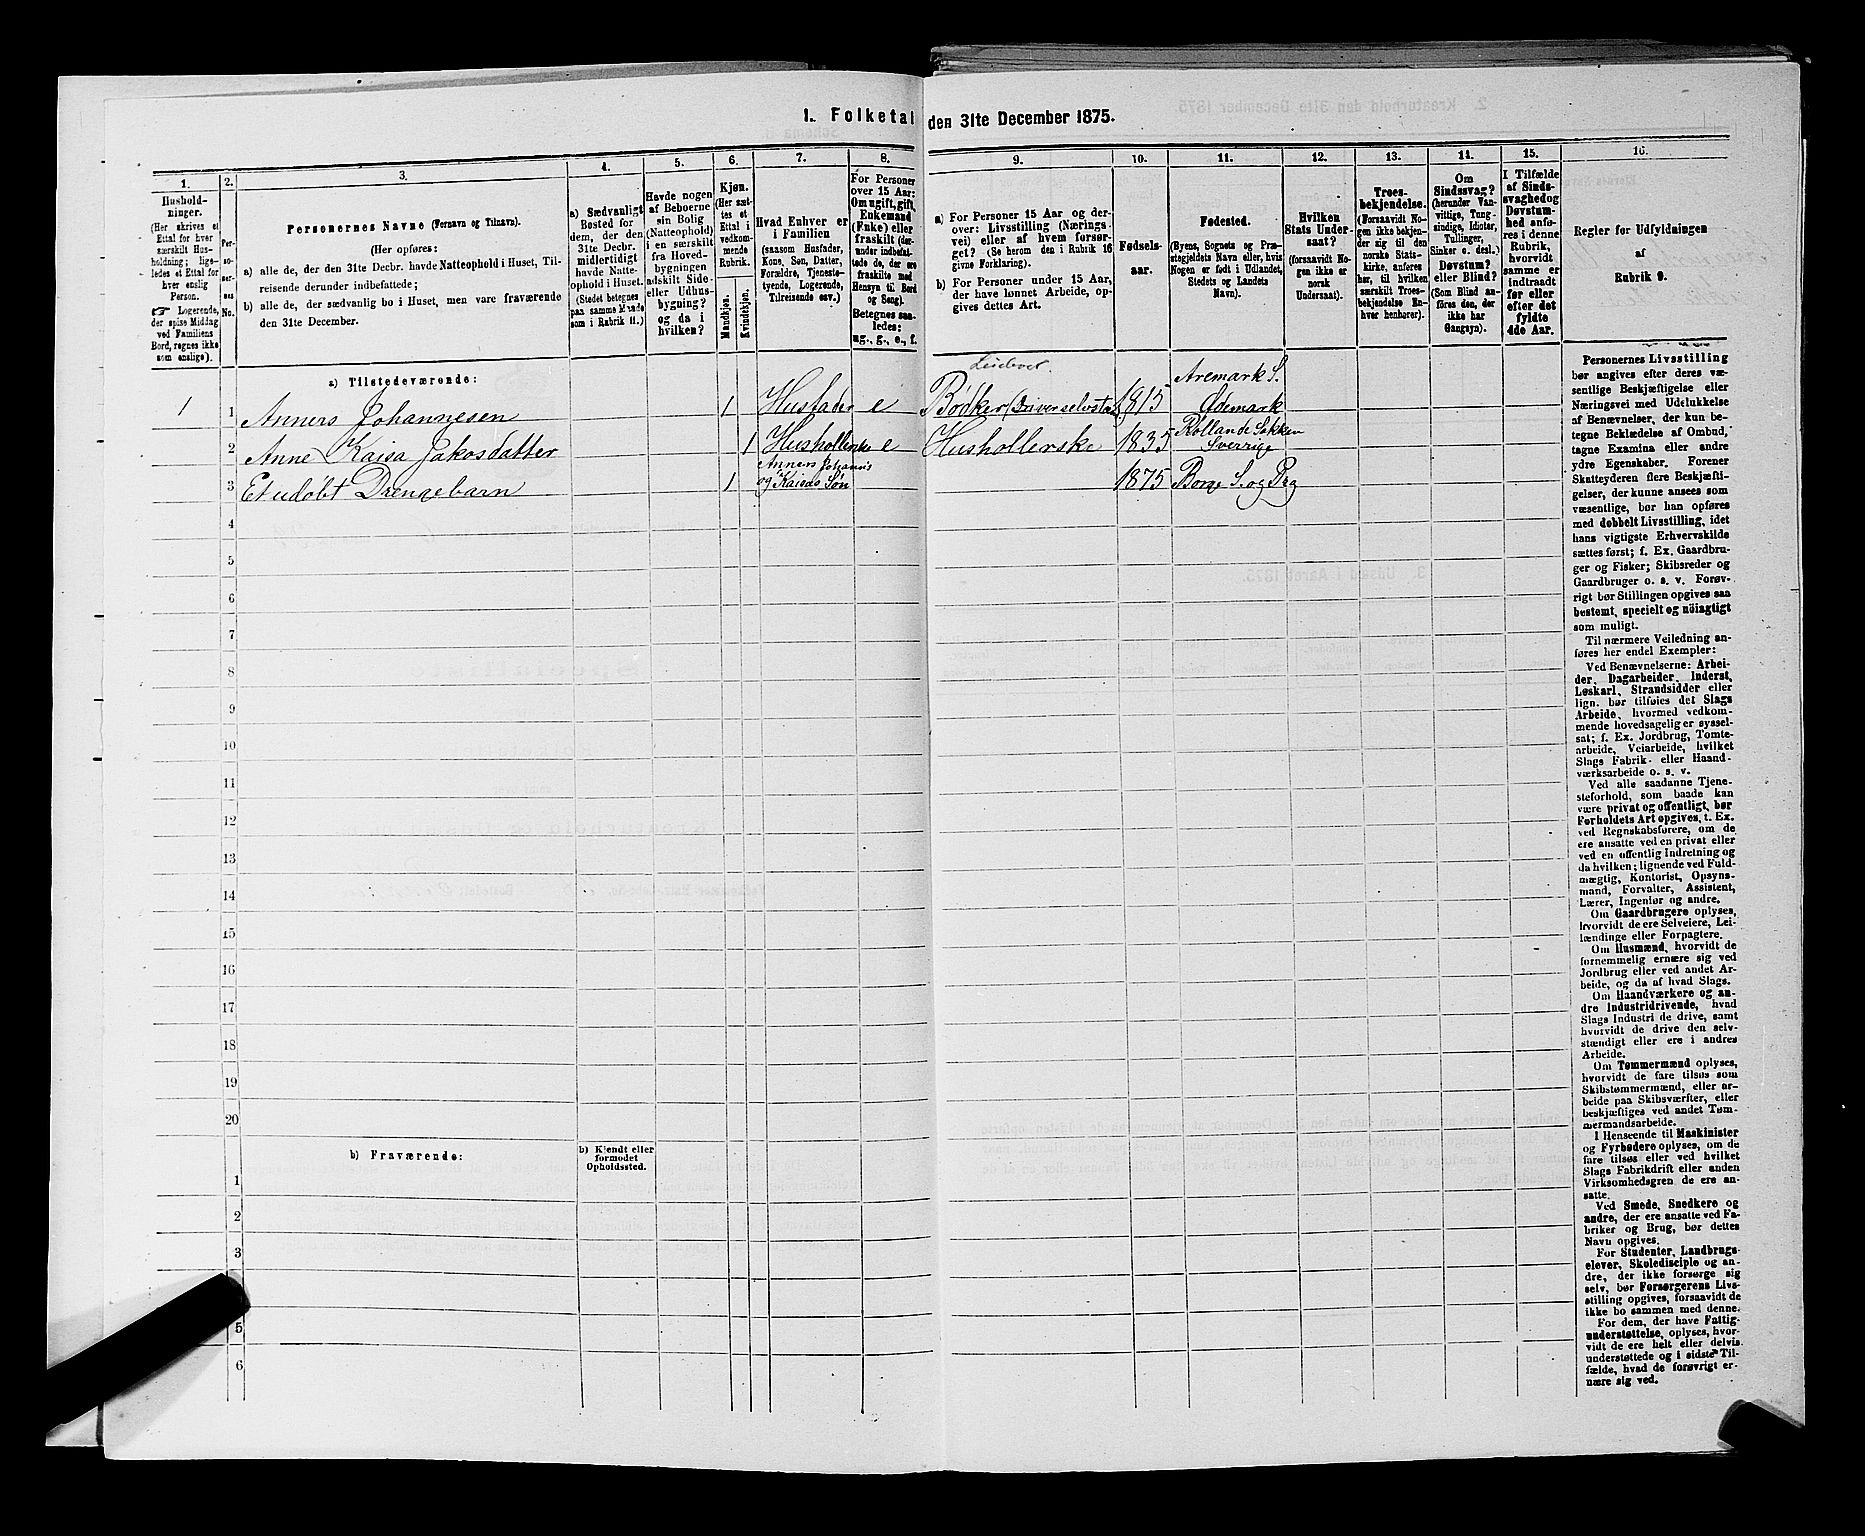 1. Folketal den 31te December 1875.
1.
2.
3.
4.
5.
6.
7.
8.
9.
10.
11.
12.
13.
14.
15.
16.
Hushold-
ninger.
(Her skrives et
Ettal for hver
særskilt Hus-
holdning; lige-
ledes et Ettal for
hver enslig
Person.
☞ Logerende,
der spise Middag
ved Familiens
Bord, regnes ikke
som enslige).
Per-
so-
ner-
nes
No.
Personernes Navne (Fornavn og Tilnavn).
(Her opføres:
a) alle de, der den 31te Decbr. havde Natteophold i Huset, Til-
reisende derunder indbefattede;
b) alle de, der sædvanlig bo i Huset, men vare fraværende
den 31te December.
a) Sædvanligt
Bosted for
dem, der den
31te Decbr.
midlertidigt
havde Natte-
ophold i Huset.
(Stedet betegnes
paa samme Maade
som i Rubrik 11.)
Havde nogen
af Beboerne
sin Bolig
(Natteophold)
i en særskilt
fra Hoved-
bygningen
adskilt Side-
eller Udhus-
bygning?
og da i
hvilken?
Kjøn.
(Her sæt-
tes et
Ettal i
vedkom-
mende
Rubrik.
Mandkjøn.
Kvindekjøn.
Hvad Enhver er
i Familien
(saasom Husfader,
Kone, Søn, Datter,
Forældre, Tjeneste-
tyende, Logerende,
Tilreisende osv.)
For Personer
over 15 Aar:
Om ugift, gift,
Enkemand
(Enke) eller
fraskilt (der-
under indbefat-
tede de, der ere
fraskilte med
Hensyn til Bord
og Seng).
Betegnes saa-
ledes:
ug., g., e., f.
a) For Personer 15 Aar og der-
over: Livsstilling (Nærings-
vei) eller af hvem forsør-
get? (Se herom den i Rubrik 16
givne Forklaring).
b) For Personer under 15 Aar,
der have lønnet Arbeide, op-
gives dettes Art.
Fødsels-
aar.
Fødested.
(Byens, Sognets og Præ-
stegjeldets Navn eller, hvis
Nogen er født i Udlandet,
Stedets og Landets
Navn).
Hvilken
Stats Under-
saat?
(forsaavidt No-
gen ikke er
norsk
Undersaat).
Troes-
bekjendelse.
(Forsaavidt No-
gen ikke bekjen-
der sig til den
norske Stats-
kirke, anføres
her, til hvilken
særskilt Troes-
bekjendelse En-
hver henhører).
Om
Sindssvag?
(herunder Van-
vittige, Tung-
sindige, Idioter,
Tullinger,
Sinker o. desl.)
Døvstum?
eller Blind?
(Som Blind an-
føres den, der
ikke har
Gangsyn).
I Tilfælde
af Sinds-
svaghed og
Døvstum-
hed anfø-
res i denne
Rubrik,
hvorvidt
samme er
indtraadt
før eller
efter det
fyldte
4de Aar.
Regler for Udfyldningen
af
Rubrik 9.
a) Tilstedeværende:
1 1 Anners Johannesen 1 Husfader e Bødker (Driver selvstæ 1815 Aremark S. Ødemark
2 Anne Kaisa Jakosdatter 1 e Hushollerske 1835 Sverrige
3 Et udøbt Drengebarn 1 og Kaisas Søn 1875 Borge S. og Prg
4
5
6
7
8
9
10
11
12
13
14
15
16
17
18
19
20
b) Fraværende:
b) Kjendt eller
formodet
Opholdssted.
1
2
3
5
6
Personernes Livsstilling
bør angives efter deres væ-
sentlige Beskjæftigelse eller
Næringsvei med Udelukkelse
af Benævnelser, der kun be-
tegne Beklædelse af Ombud,
tagne Examina eller andre
ydre Egenskaber. Forener
Skatteyderen flere Beskjæfti-
gelser, der kunne ansees som
væsentlige, bør han opføres
med dobbelt Livsstilling, idet
hans vigtigste Erhvervskilde
sættes først; f. Ex. Gaardbru-
ger og Fisker; Skibsreder og
Gaardbruger o. s. v. Forøv-
rigt bør Stillingen opgives saa
bestemt, specielt og nöiagtigt
som muligt.
Til nærmere Veiledning an-
føres her endel Exempler:
Ved Benævnelserne: Arbei-
der, Dagarbeider, Inderst,
Løskarl, Strandsidder eller
lign. bør tilføies det Slags
Arbeide, hvormed vedkom-
mende hovedsagelig er syssel-
sat; f. Ex. Jordbrug, Tomte-
arbeide, Veiarbeide, hvilket
Slags Fabrik- eller Haand-
værksarbeide o. s. v.
Ved alle saadanne Tjene-
steforhold, som baade kan
være privat og offentligt, bør
Forholdets Art opgives, t. Ex.
ved Regnskabsførere, om de
ere ansatte ved en privat eller
ved en offentlig Indretning og
da hvilken; lignende ved Fuld-
mægtig, Kontorist, Opsyns-
mand, Forvalter, Assistent,
Lærer, Ingeniør og andre.
Om Gaardbrugere oplyses,
hvorvidt de ere Selveiere, Lei-
lændinge eller Forpagtere.
Om Husmænd, hvorvidt de
fornemmelig ernære sig ved
Jordbrug eller ved andet Ar-
beide, og da af hvad Slags.
Om Haandværkere og an-
dre Industridrivende, hvad
Slags Industri de drive, samt
hvorvidt de drive den selv-
stændigt eller ere i andres
Arbeide.
Om Tømmermænd oplyses,
hvorvidt de fare tilsøs som
Skibstømmermænd, eller ar-
beide paa Skibsværfter, eller
beskjæftiges ved andet Tøm-
mermandsarbeide.
I Henseende til Maskinister
og Fyrbødere oplyses, om de
fare tilsøs eller ved hvilket
Slags Fabrikdrift eller anden
Virksomhedsgren de ere an-
satte.
Ved Smede, Snedkere og
andre, der ere ansatte ved Fa-
briker og Brug, bør dettes
Navn opgives.
For Studenter, Landbrugs-
elever, Skoledisciple og an-
dre, der ikke forsørge sig
selv, bør Forsørgerens Livs-
stilling opgives, forsaavidt de
ikke bo sammen med denne.
For dem, der have Fattig-
understøttelse, oplyses, hvor-
vidt de ere helt eller delvis
understøttede og i sidste Til-
fælde, hvad de forøvrigt er-
nære sig ved.